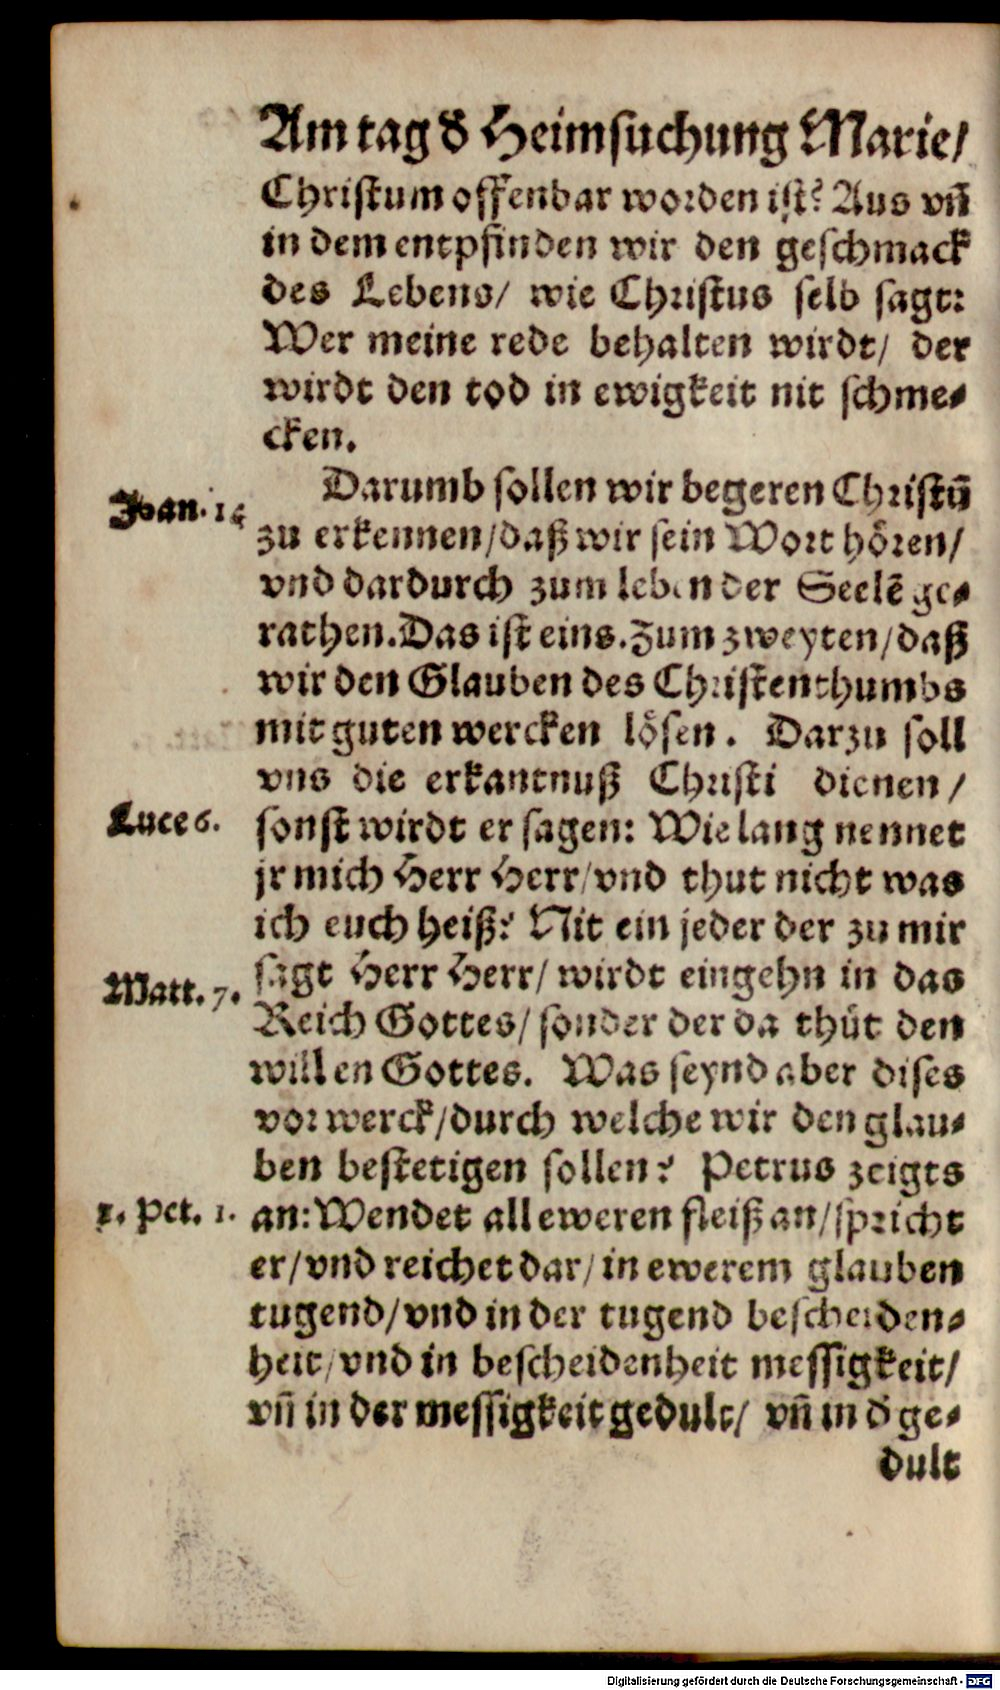 Am tag d̕ Heimsuchung Marie/
Christum offenbar worden ist? Aus vñ
in dem entpfinden wir den geschmack
des Lebens/ wie Christus selb sagt:
Wer meine rede behalten wirdt/ der
wirdt den tod in ewigkeit nit schme⸗
cken.
Darumb sollen wir begeren Christū
Joan. 14
zu erkennen/daß wir sein Wort hören/
vnd dardurch zum leben der Seelē ge⸗
rathen. Das ist eins. Zum zweyten/daß
wir den Glauben des Christenthumbs
mit guten wercken lösen. Darzu soll
vns die erkantnuß Christi dienen/
Luce 6.
sonst wirdt er sagen: Wie lang nennet
jr mich Herr Herr/vnd thut nicht was
ich euch heiß? Nit ein jeder der zu mir
Matt. 7.
sagt Herr Herr/ wirdt eingehn in das
Reich Gottes/ sonder der da thůt den
willen Gottes. Was seynd aber dises
vor werck/durch welche wir den glau⸗
ben bestetigen sollen? Petrus zeigts
1. Pet. 1.
an: Wendet all eweren fleiß an/spricht
er/vnd reichet dar/ in ewerem glauben
tugend/vnd in der tugend bescheiden⸗
heit/vnd in bescheidenheit messigkeit/
vñ in der messigkeit gedult/ vñ in d̕ ge⸗
dult
Digitalisierung gefördert durch die Deutsche Forschungsgemeinschaft - DFG